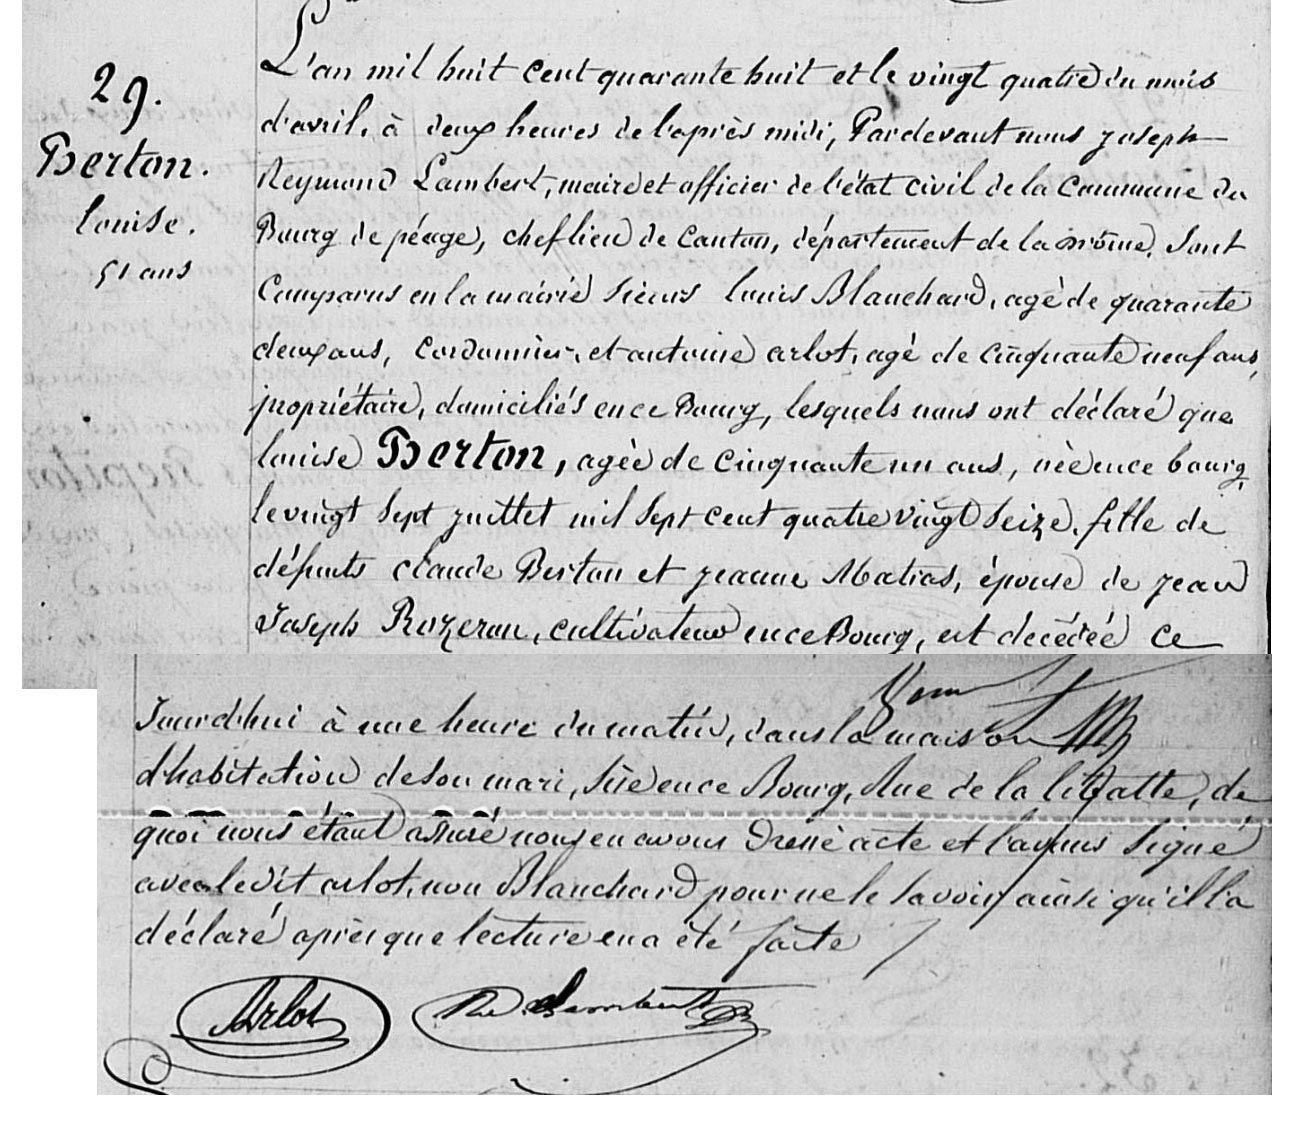 29.
Berton.
Louise.
51 ans
L'an mil huit cent quarante huit et le vingt quatre du mois
d'avril, à deux heures de l'après midi, Pardevant nous Joseph
Reymond Lambert, maire et officier de l'état civil de la Commune du
Bourg de péage, chef lieu de Canton, département de la Drôme, Sont
Comparus en la mairie Sieurs Louis Blanchard, agé de quarante
deux ans, Cordonnier, et antoine arlot, agé de cinquante neuf ans,
propriétaire, domiciliés en ce Bourg, lesquels nous ont déclaré que
Louise Berton, agée de cinquante un ans, née en ce bourg,
le vingt Sept juillet mil Sept cent quatre vingt Seize, fille de
défunts Claude Berton et Jeanne Matras, épouse de Jean
Joseph Rozeran, cultivateur en ce Bourg, est decédée ce
Jourd'hui à une heure du matin, dans la maison
d'habitation de son mari, Sise en ce Bourg, Rue de la , de
quoi nous étant assuré nous en avons Dressé acte et l'avons Signé
avec le dit arlot, non Blanchard pour ne le savoir ainsi qu'il l'a
déclaré après que lecture en a été faite
Arlot Rd Lambert